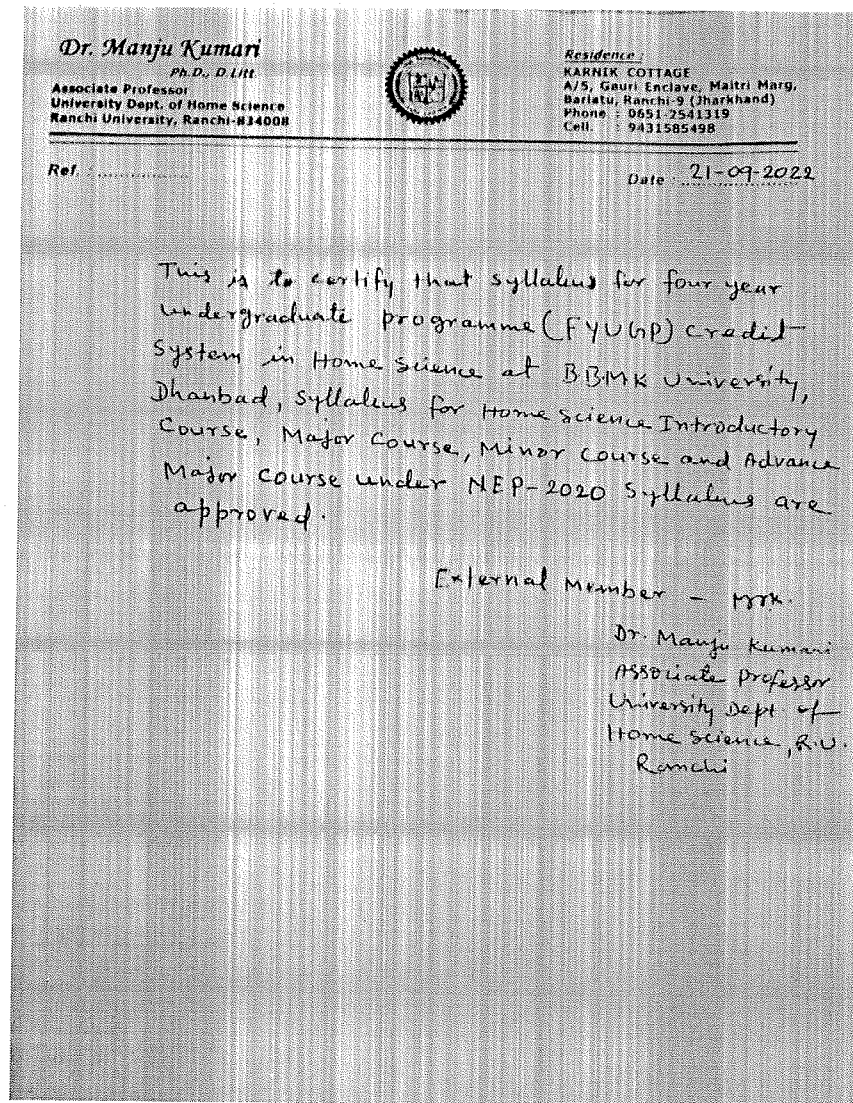 Dr. Manju Kumari
Ph.D., D.Litt.
Associate Professor
University Dept. of Home Science
Ranchi University, Ranchi-834008
Residence :
KARNIK COTTAGE
A/5, Gauri Enclave, Maitri Marg,
Bariatu, Ranchi-9 (Jharkhand)
Phone : 0651-2541319
Cell. : 9431585498
Ref. :
Date : 21-09-2022
This is to certify that syllabus for four year
undergraduate programme (FYUGP) credit
System in Home Science at BBMK University,
Dhanbad, Syllabus for Home science Introductory
Course, Major Course, Minor Course and Advance
Major Course under NEP-2020 Syllabus are
approved.
External Member -
Dr. Manju Kumari
Associate Professor
University Dept of
Home Science, R.U.
Ranchi